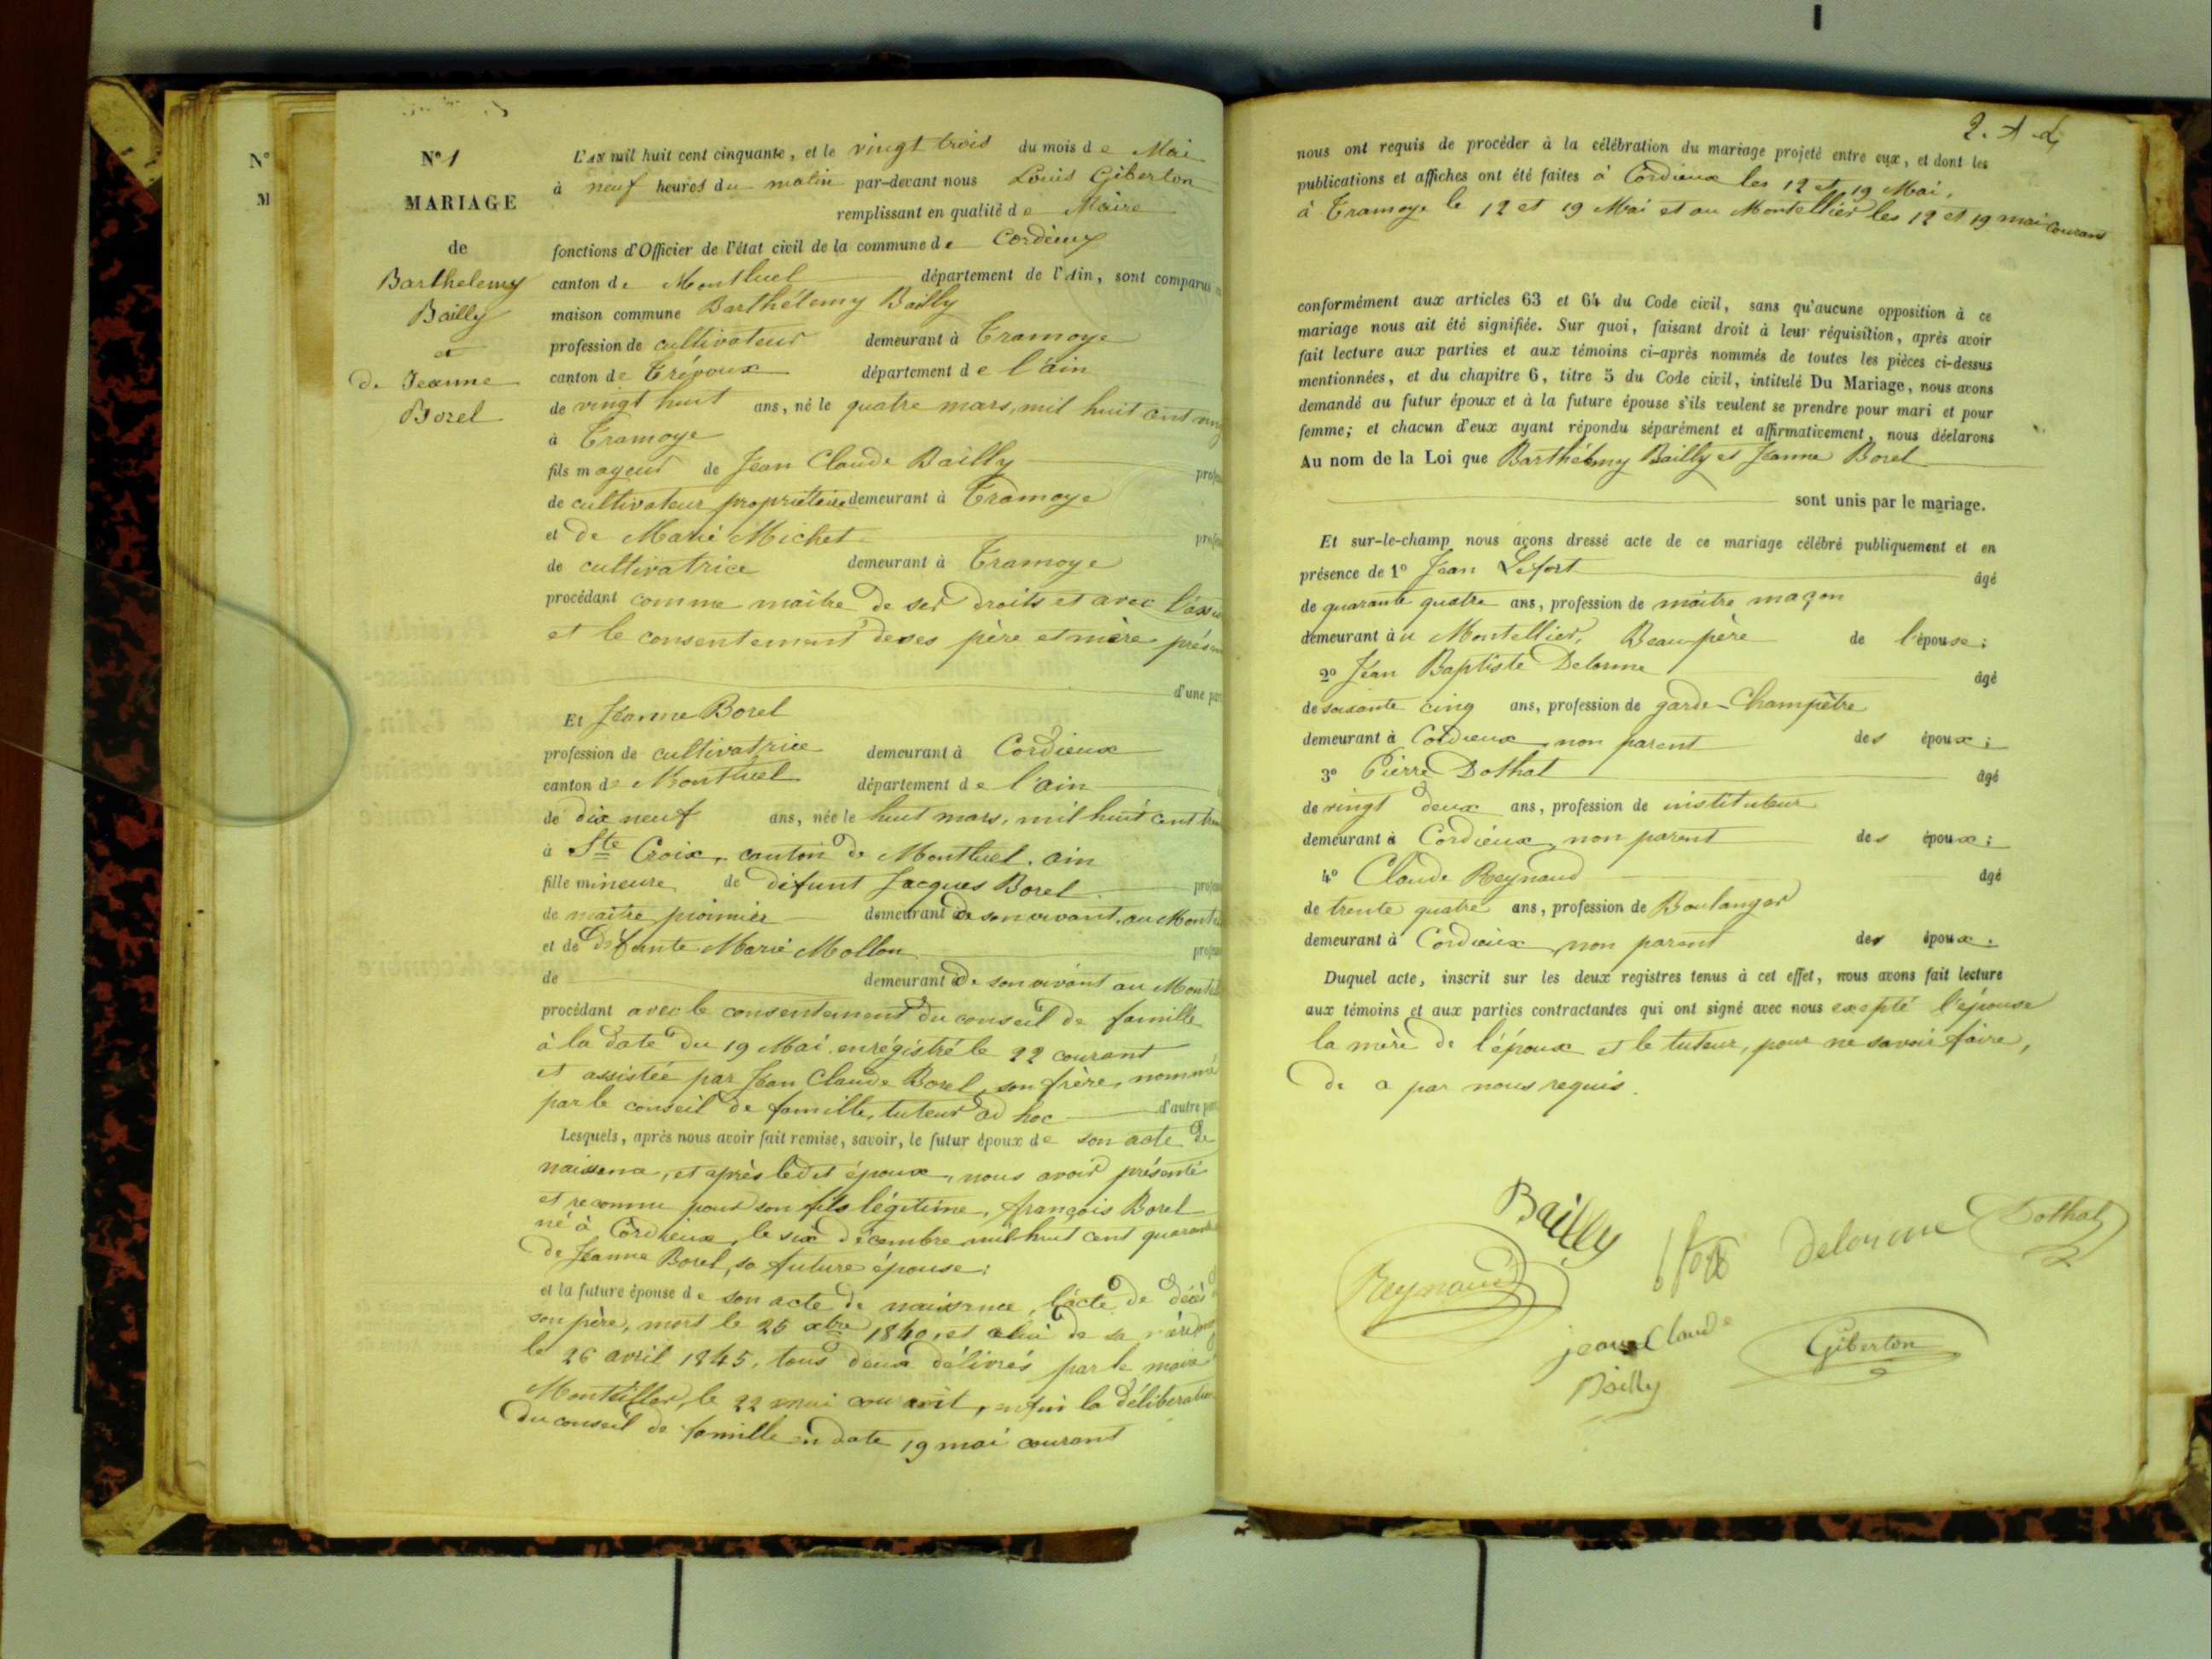 N°
M
N° 1
MARIAGE
de
Barthelemy
Bailly
et
de Jeanne
Borel
L'AN mil huit cent cinquante, et le vingt trois du mois de Mai
à neuf heures du matin par-devant nous Louis Giberton
remplissant en qualité de Maire
fonctions d'Officier de l'état civil de la commune de Cordieux
canton de Montluel département de l'Ain, sont comparus
maison commune Barthélemy Bailly
profession de cultivateur demeurant à Tramoye
canton de Trévoux département de l'ain
de vingt huit ans, né le quatre mars, mil huit cent
à Tramoye
fils mayeur de Jean Claude Bailly
de cultivateur propriétaire demeurant à Tramoye
et de Marie Michet
de cultivatrice demeurant à Tramoye
procédant comme maître de ses droits et avec
et le consentement de ses père et mère
d'une
Et Jeanne Borel
profession de cultivatrice demeurant à Cordieux
canton de Montluel département de l'ain
de dix neuf ans, née le huit mars, mil huit cent
à Ste Croix, canton de Montluel. ain
fille mineure de défunt Jacques Borel
de maître demeurant de son vivant au
et de défunte Marie Mollon
de demeurant de son vivant au
procédant avec le consentement du conseil de famille
à la date du 19 Mai enrégistré le 22 courant
et assistée par Jean Claude Borel, son frère, nommé
par le conseil de famille, tuteur ad hoc d'autre
Lesquels, après nous avoir fait remise, savoir, le futur époux de son acte de
naissance, et après ledit époux, nous avoir présenté
et reconnu pour son fils légitime, françois Borel
né à Cordieux, le six décembre mil huit cent
de Jeanne Borel, sa future épouse;
et la future épouse de son acte de naissance, l'acte de décès
son père, mort le 25 xbre 1840, et celui de sa
le 26 avril 1845, tous deux délivrés par le maire
le 22 mai courant, enfin la
du conseil de famille en date 19 mai courant
nous ont requis de procéder à la célébration du mariage projeté entre eux, et dont les
publications et affiches ont été faites à Cordieux les 12 et 19 Mai,
à Tramoye le 12 et 19 Mai et au Montellier les 12 et 19 mai courant
conformément aux articles 63 et 64 du Code civil, sans qu'aucune opposition à ce
mariage nous ait été signifiée. Sur quoi, faisant droit à leur réquisition, après avoir
fait lecture aux parties et aux témoins ci-après nommés de toutes les pièces ci-dessus
mentionnées, et du chapitre 6, titre 5 du Code civil, intitulé Du Mariage, nous avons
demandé au futur époux et à la future épouse s'ils veulent se prendre pour mari et pour
femme; et chacun d'eux ayant répondu séparément et affirmativement, nous déclarons
Au nom de la Loi que Barthélemy Bailly et Jeanne Borel
sont unis par le mariage.
Et sur-le-champ nous avons dressé acte de ce mariage célébré publiquement et en
présence de 1° Jean Lefort âgé
de quarante quatre ans, profession de maître maçon
demeurant au Montellier, Beau père de l'épouse;
2° Jean Baptiste Delorme âgé
de soixante cinq ans, profession de garde-Champêtre
demeurant à Cordieux, non parent des époux;
3° Pierre Dothal âgé
de vingt deux ans, profession de instituteur
demeurant à Cordieux, non parent des époux;
4° Claude Reynaud âgé
de trente quatre ans, profession de Boulanger
demeurant à Cordieux, non parent des époux.
Duquel acte, inscrit sur les deux registres tenus à cet effet, nous avons fait lecture
aux témoins et aux parties contractantes qui ont signé avec nous excepté l'épouse
la mère de l'époux et le tuteur, pour ne savoir faire,
de a par nous requis.
Bailly
Delorme
Dothal
Reynaud
jean Claude
Bailly
Giberton